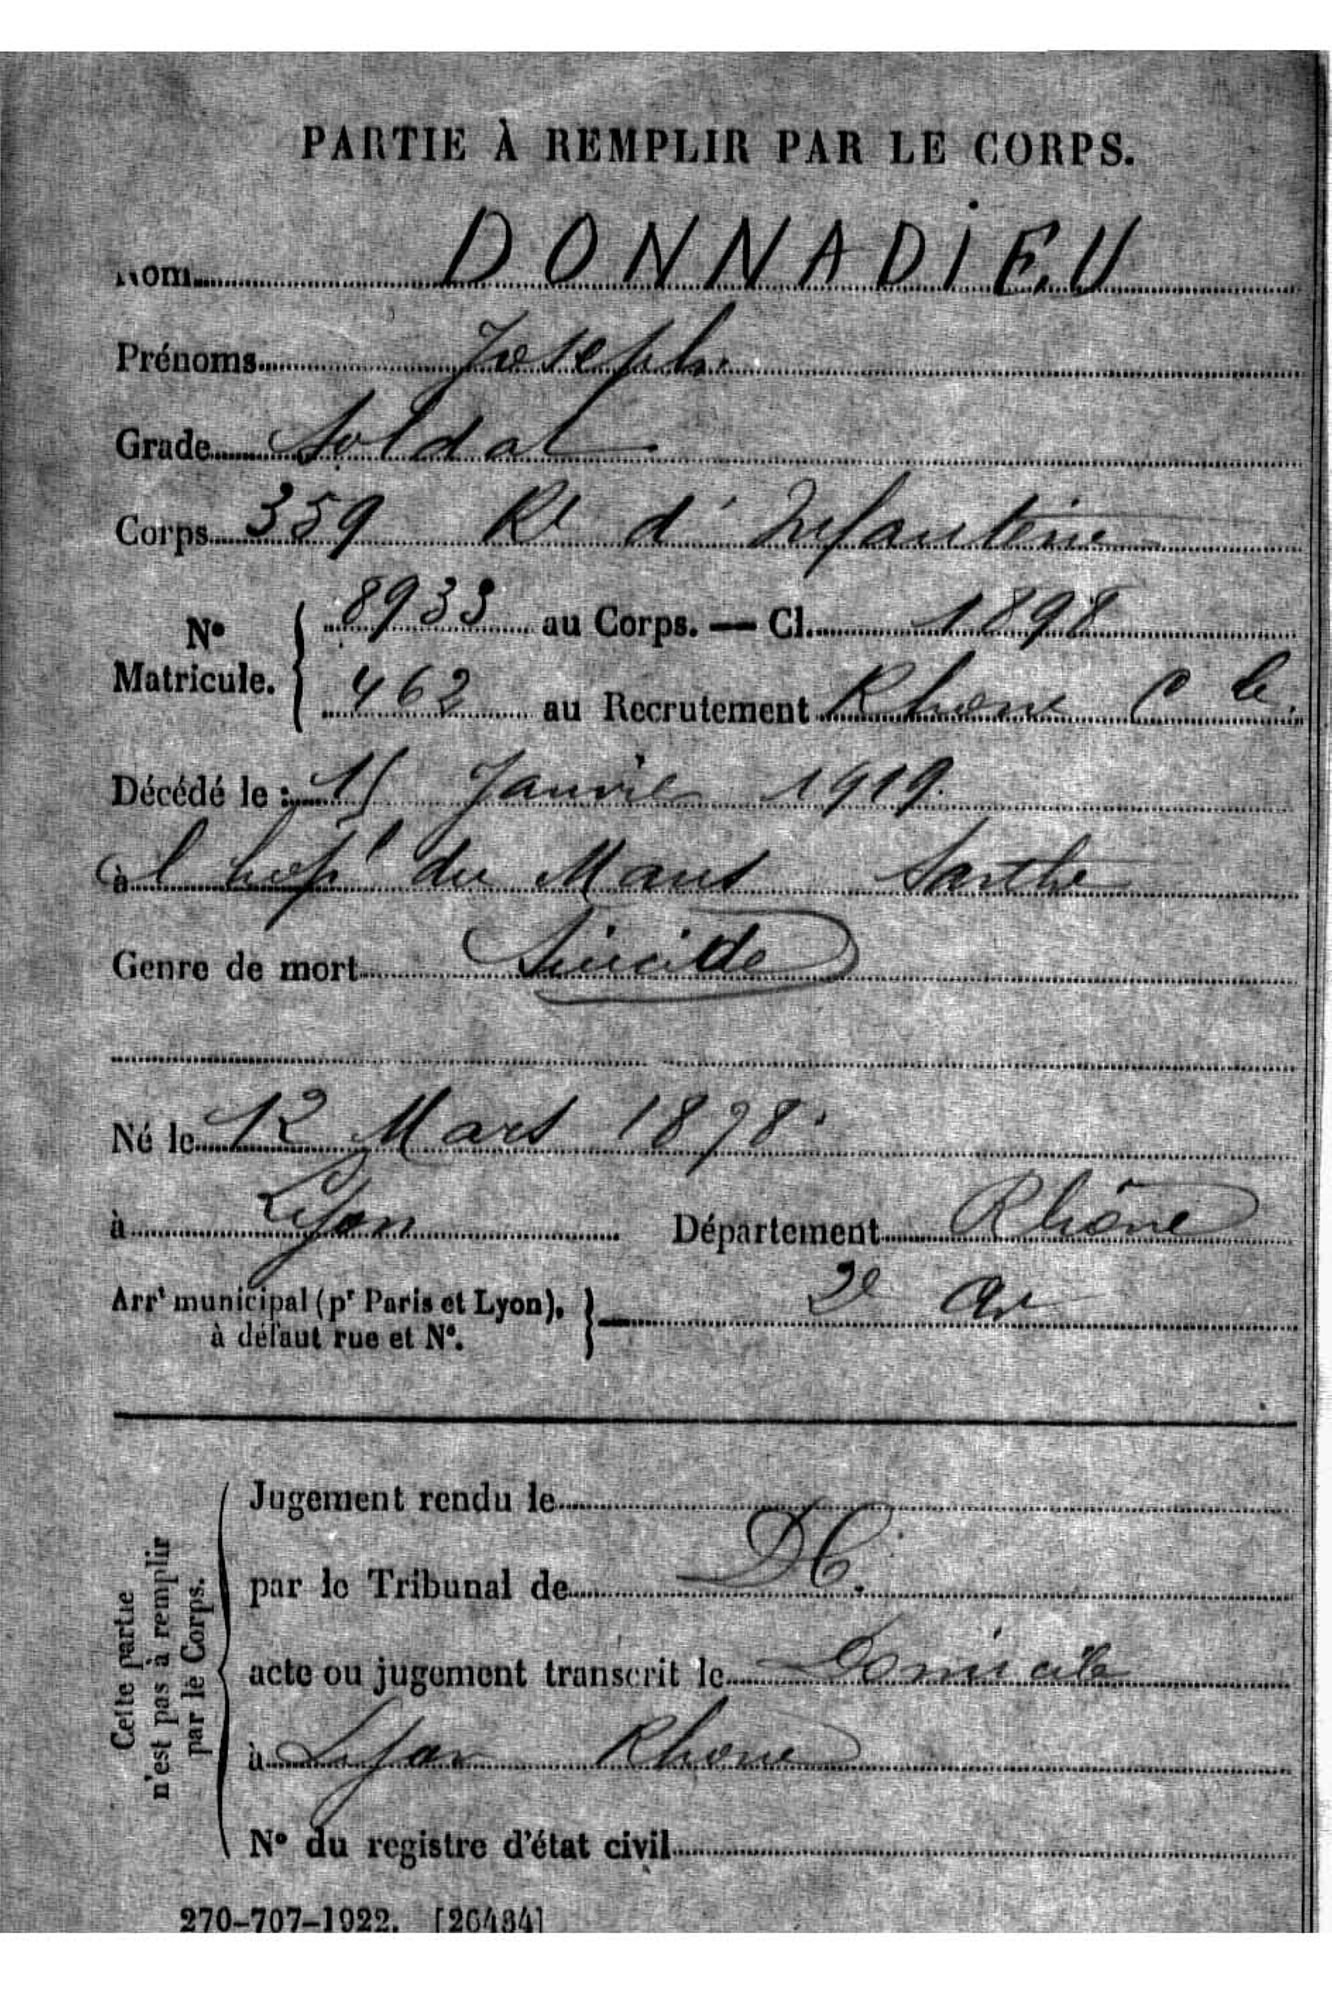 PARTIE À REMPLIR PAR LE CORPS.
Nom DONNADIEU
Prénoms Joseph.
Grade Soldat
Corps 359 Rt d'Infanterie
No Matricule. 8933 au Corps. — Cl. 1898
462 au Recrutement Rhône C le.
Décédé le : 15 Janvie 1919.
à l hopl du Mans Sarthe
Genre de mort Suicide
Né le 12 Mars 1878.
à Lyon Département Rhône
Arrt municipal (pr Paris et Lyon), à défaut rue et No. 2e ar
Cette partie n'est pas à remplir par le Corps.
Jugement rendu le
par le Tribunal de DC.
acte ou jugement transcrit le Domicile
à Lyon Rhone
No du registre d'état civil
270-707-1922. [26434]